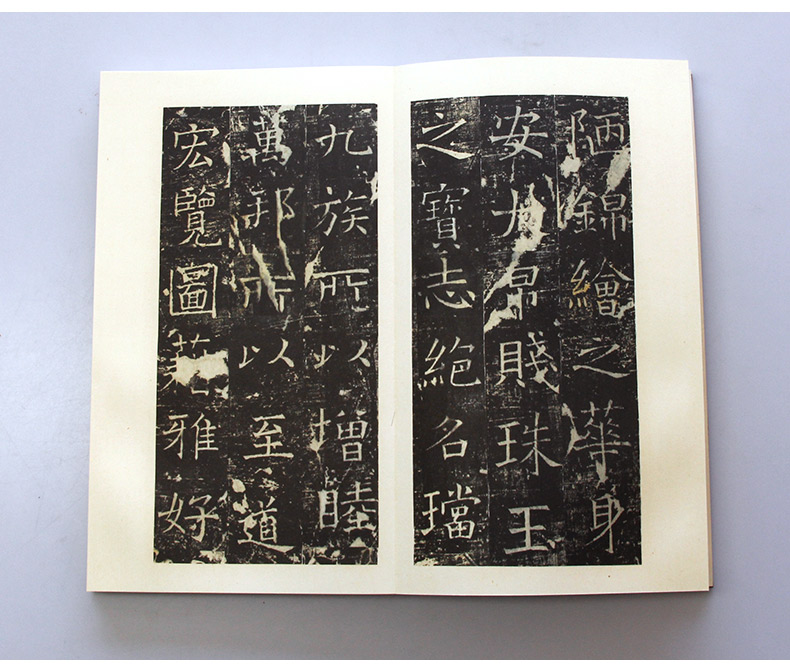 陋錦繪之華身
安大帛賤珠玉
之寶志絕名璫
九族所以增睦
萬邦所以至道
宏覽圖藉雅好